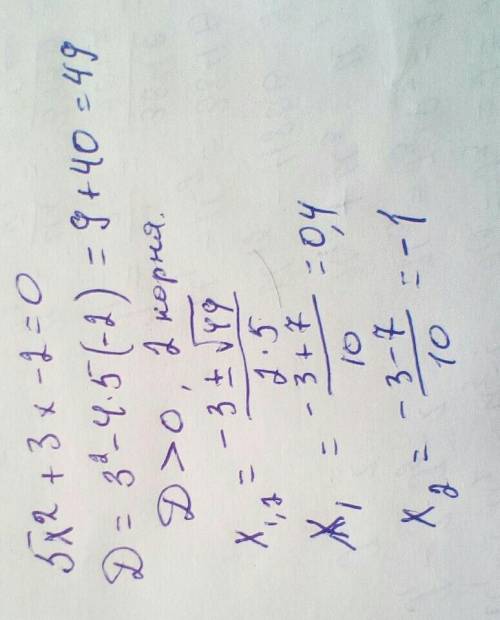 5x² + 3x - 2 = 0
D = 3² - 4·5(-2) = 9 + 40 = 49
D > 0, 2 корня.
x₁,₂ = (-3 ± √49) / (2·5)
x₁ = (-3 + 7) / 10 = 0,4
x₂ = (-3 - 7) / 10 = -1